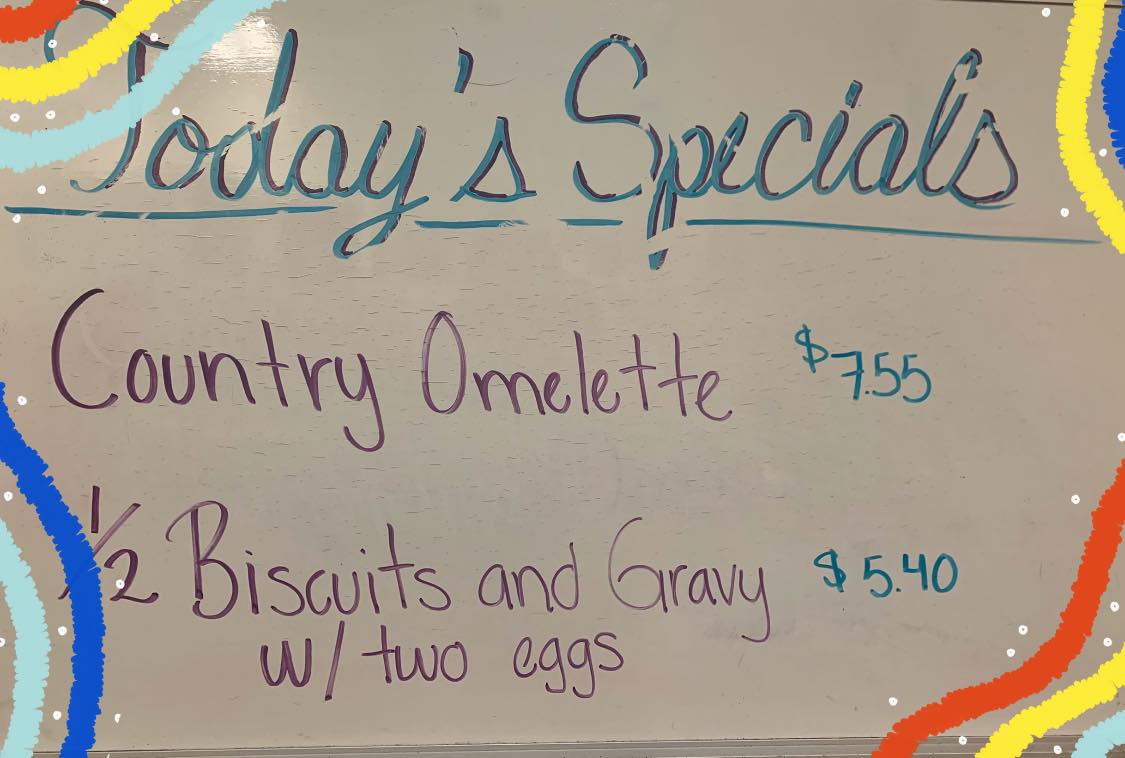 Today's Specials
Country Omelette $7.55
1/2 Biscuits and Gravy $5.40
w/ two eggs